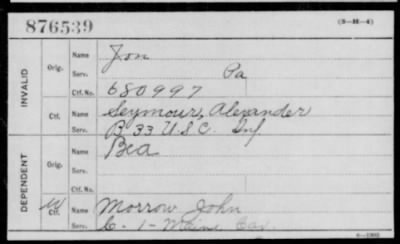 876539
(3-H-4)
INVALID
Orig.
Name Jon
Serv. Pa
Ctf. No. 680997
Ctf.
Name Seymour, Alexander
Serv. B 33 U.S.C. Inf
DEPENDENT
Orig.
Name Bea
Serv.
Ctf.
Name Morrow John
Serv. C-1-Maine Cav.